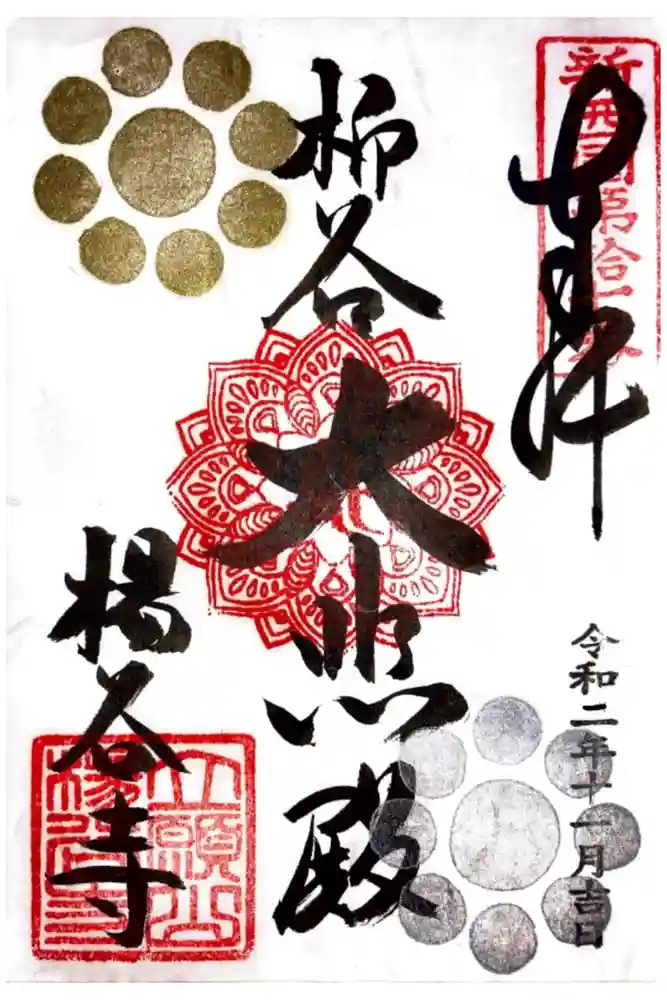 奉拝
新西国第拾七番
令和二年十一月吉日
柳谷
大悲殿
楊谷寺
立願山
楊谷寺